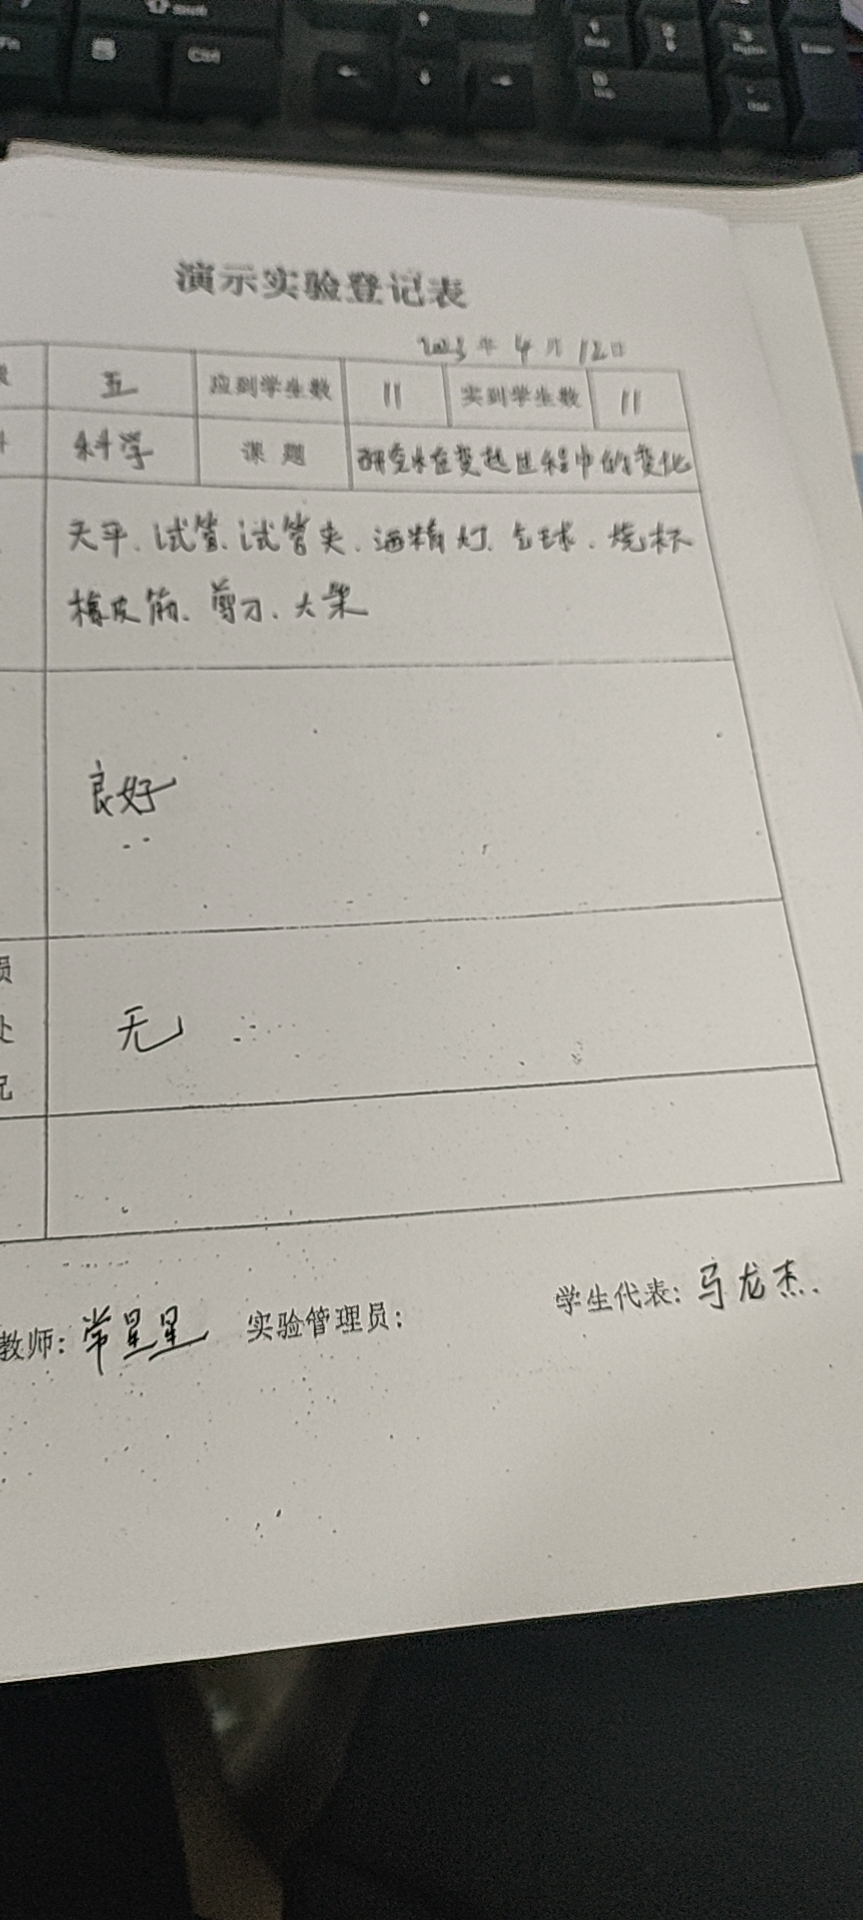 Shift
Ctrl
演示实验登记表
2023年4月12日
五 应到学生数 11 实到学生数 11
科学 课题 研究水在变热过程中的变化
天平、试管、试管夹、酒精灯、气球、烧杯
橡皮筋、剪刀、火柴
良好
损
处
况
无
教师:常星星 实验管理员: 学生代表:马龙杰.